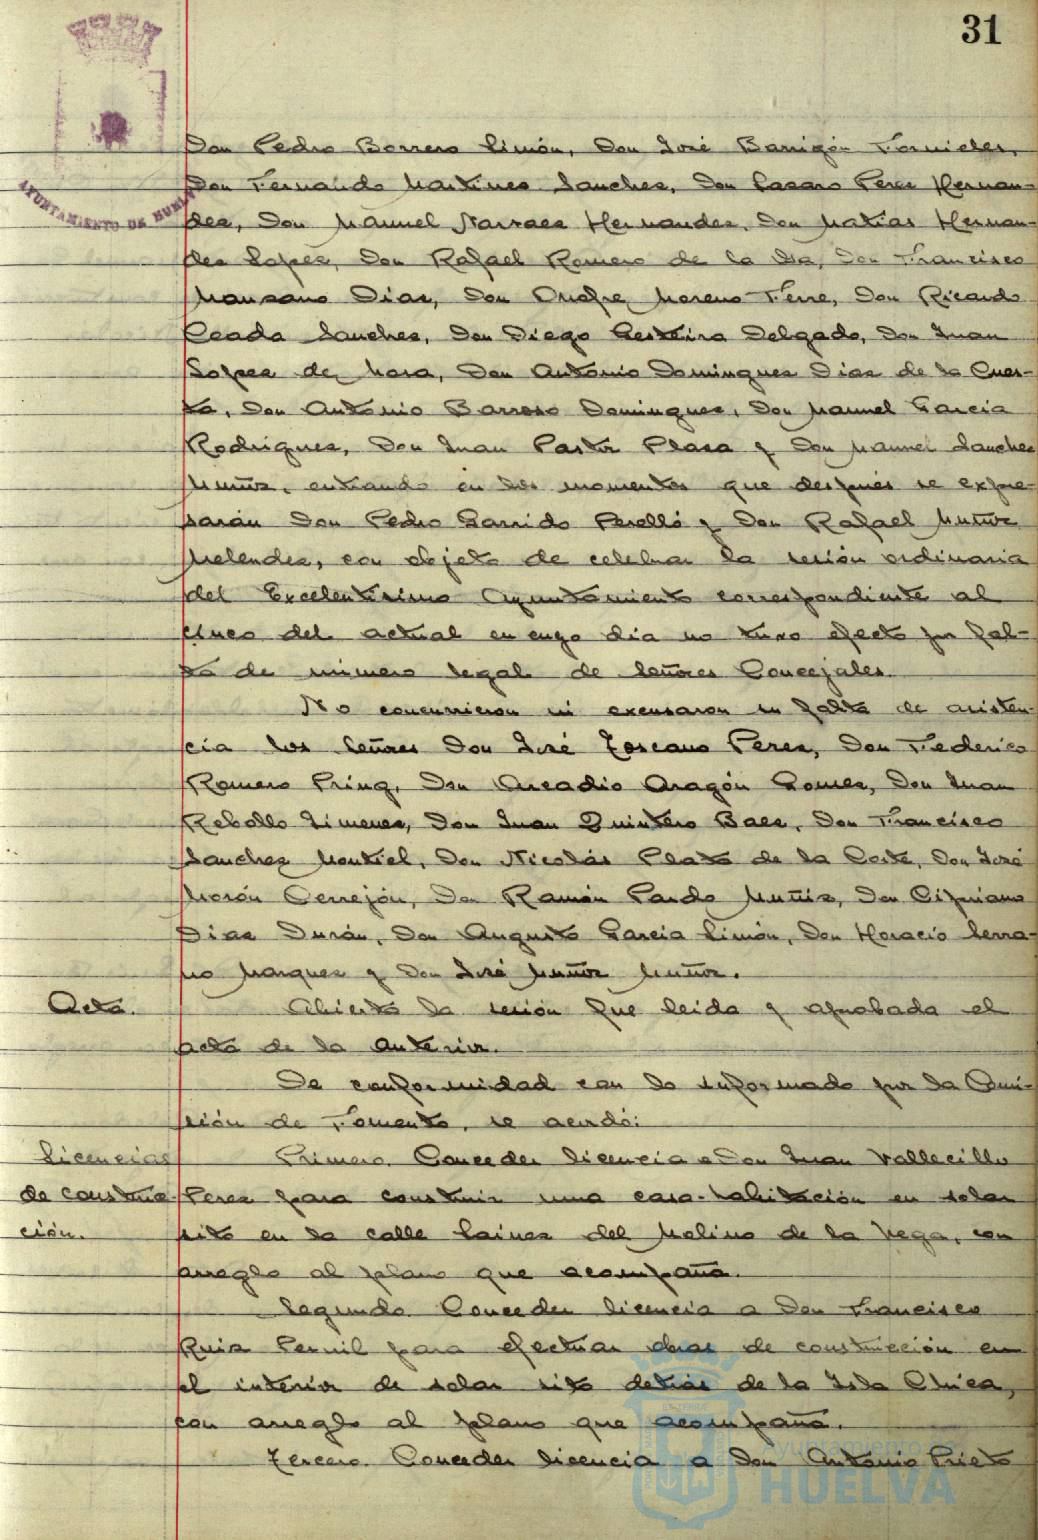 31
AYUNTAMIENTO DE HUELVA
Don Pedro Borrero Limón, Don José Barrigón Fornieles,
Don Fernando Martinez Sanchez, Don Lazaro Perez Hernan-
dez, Don Manuel Narvaez Hernandez, Don Matias Hernan-
dez Lopez, Don Rafael Romero de la Osa, Don Francisco
Manzano Dias, Don Onofre Moreno Ferre, Don Ricardo
Ceada Sanchez, Don Diego Delgado, Don Juan
Lopez de Mora, Don Antonio Dominguez Dias de la Cues-
ta, Don Antonio Barroso Dominguez, Don Manuel Garcia
Rodriguez, Don Juan Pastor Plaza y Don Manuel Sanchez
Muñoz, entrando en los momentos que después se expre-
sarán Don Pedro Garrido Perelló y Don Rafael Muñoz
Melendez, con objeto de celebrar la sesión ordinaria
del Excelentisimo Ayuntamiento correspondiente al
cinco del actual en cuyo dia no tuvo efecto por fal-
ta de número legal de Señores Concejales.
No concurrieron ni excusaron su falta de asisten-
cia los Señores Don José Toscano Perez, Don Federico
Romero Pring, Don Arcadio Aragón Gomez, Don Juan
Rebollo Jimenez, Don Juan Quintero Baez, Don Francisco
Sanchez Montiel, Don Nicolás Plata de la Corte, Don José
Morón Cerrejón, Don Ramón Pardo Muñiz, Don Cipriano
Dias Durán, Don Augusto Garcia Limón, Don Horacio Serra-
no Marquez y Don José Muñoz Muñoz.
Acta. Abierta la sesión fue leida y aprobada el
acta de la anterior.
De conformidad con lo informado por la Comi-
sión de Fomento, se acordó:
Licencias Primero. Conceder licencia a Don Juan Vallecillo
de construc- Perez para construir una casa-habitación en solar
ción. sito en la calle Lainez del Molino de la Vega, con
arreglo al plano que acompaña.
Segundo. Conceder licencia a Don Francisco
Ruiz Pernil para efectuar obras de construcción en
el interior de solar sito detrás de la Isla Chica,
con arreglo al plano que acompaña.
Tercero. Conceder licencia a Don Antonio Prieto
Ayuntamiento de
HUELVA